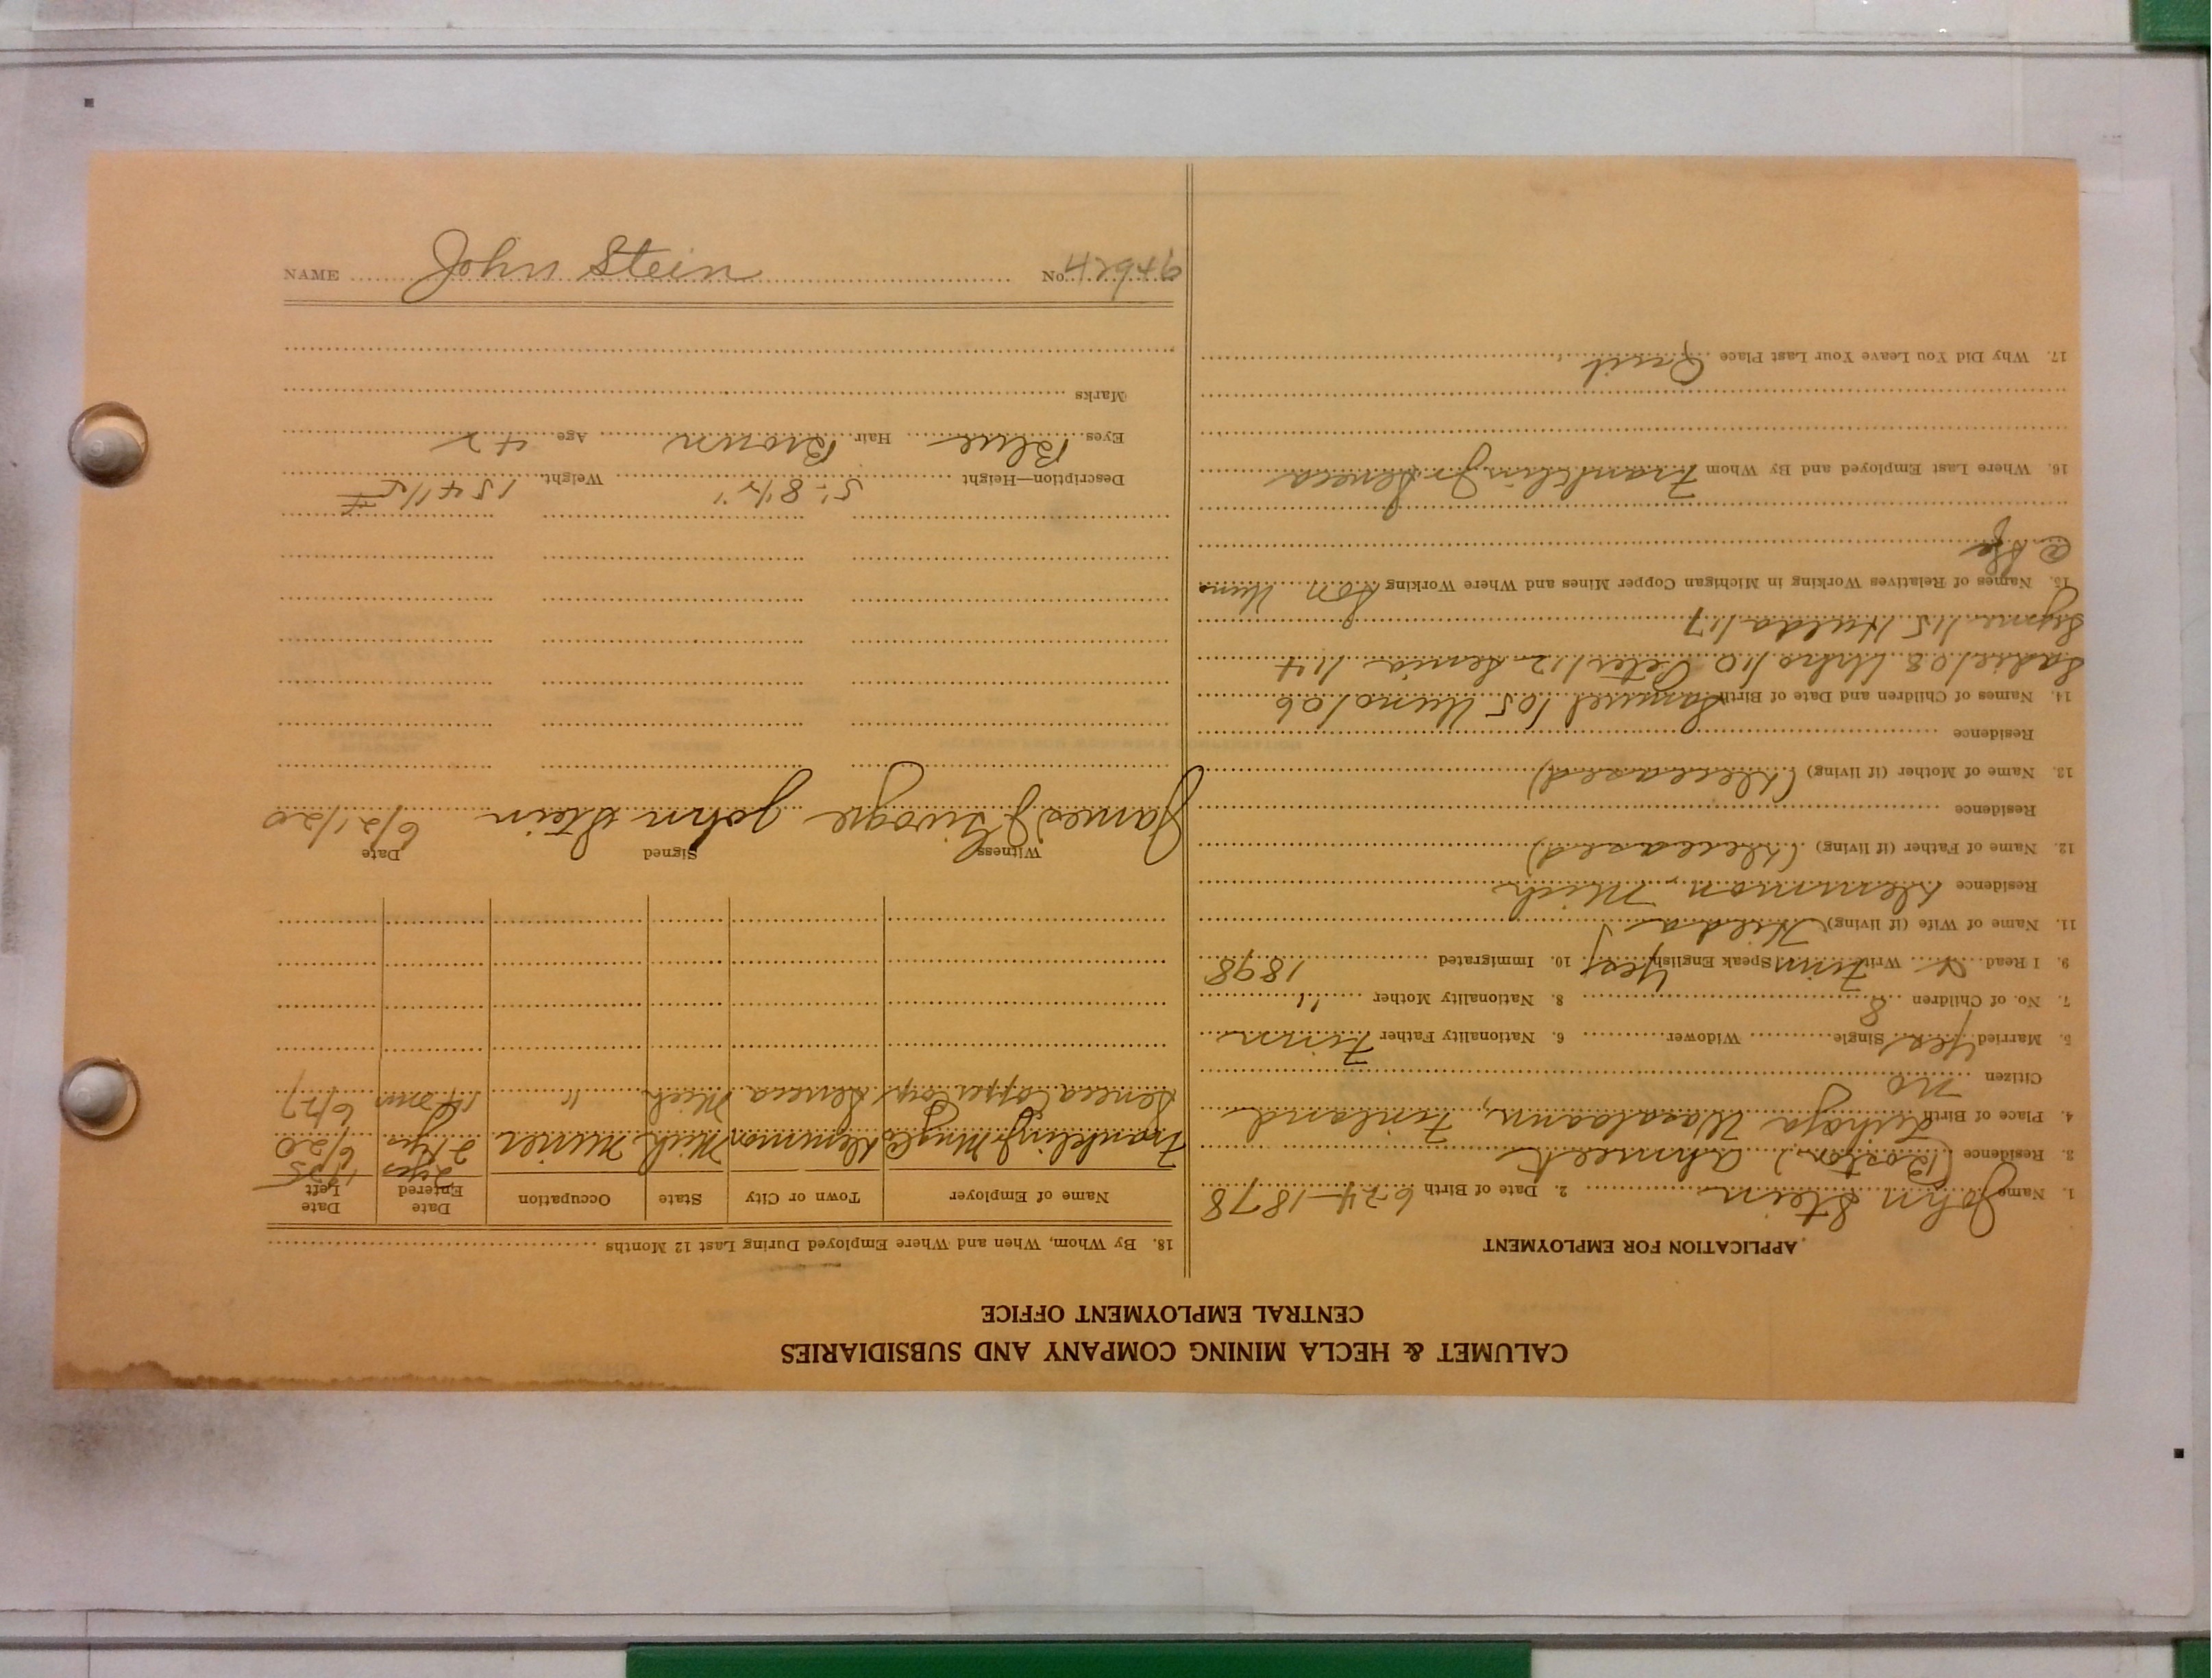 CALUMET & HECLA MINING COMPANY AND SUBSIDIARIES
CENTRAL EMPLOYMENT OFFICE
APPLICATION FOR EMPLOYMENT
1. Name John Stein 2. Date of Birth 6-24-1878
3. Residence (Boston) Ahmeek
4. Place of Birth Waasalaani, Finland
Citizen No
5. Married Yes Single Widower 6. Nationality Father Finn
7. No. of Children 8 8. Nationality Mother "
9. I Read & Write Finn Speak English Yes 10. Immigrated 1898
11. Name of Wife (if living) Hilda
Residence Demmon, Mich
12. Name of Father (if living) (Deceased)
Residence
13. Name of Mother (if living) (Deceased)
Residence
14. Names of Children and Date of Birth Samuel /05 Uuno /06
Sadie /08 Urho /10 Peter /12 Senia /14
Signe /15 Hulda /17
15. Names of Relatives Working in Michigan Copper Mines and Where Working Son Uuno
@
16. Where Last Employed and By Whom Franklin Jr Seneca
17. Why Did You Leave Your Last Place Quit
18. By Whom, When and Where Employed During Last 12 Months
Name of Employer Town or City State Occupation Date Entered Date Left
2 yrs
Franklin Jr Mng Co Demmon Mich Miner 2 1/2 yrs 6/20
Seneca Copper Corp Seneca Mich " 6/27
Witness Signed Date
James J John Stein 6/21/20
Description—Height 5' 8 1/2" Weight 154 1/2 #
Eyes Blue Hair Brown Age 42
Marks
NAME John Stein No. 42946